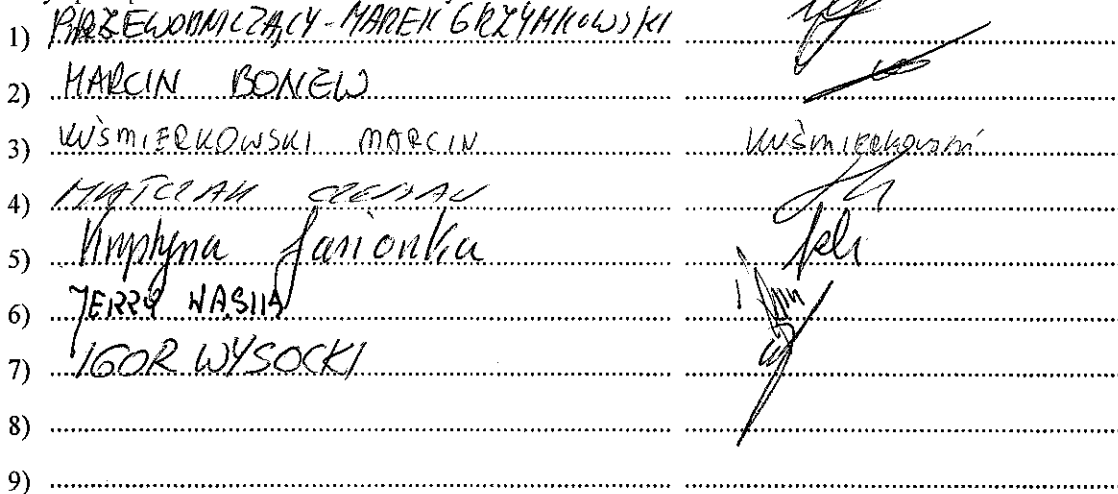 1) PRZEWODNICZĄCY - MAREK GRZYMKOWSKI
2) MARCIN BONEW
3) KUŚMIERKOWSKI MARCIN Kuśmierkowski
4) CZESŁAW
5) Krystyna Jasionka
6) JERZY
7) IGOR WYSOCKI
8)
9)